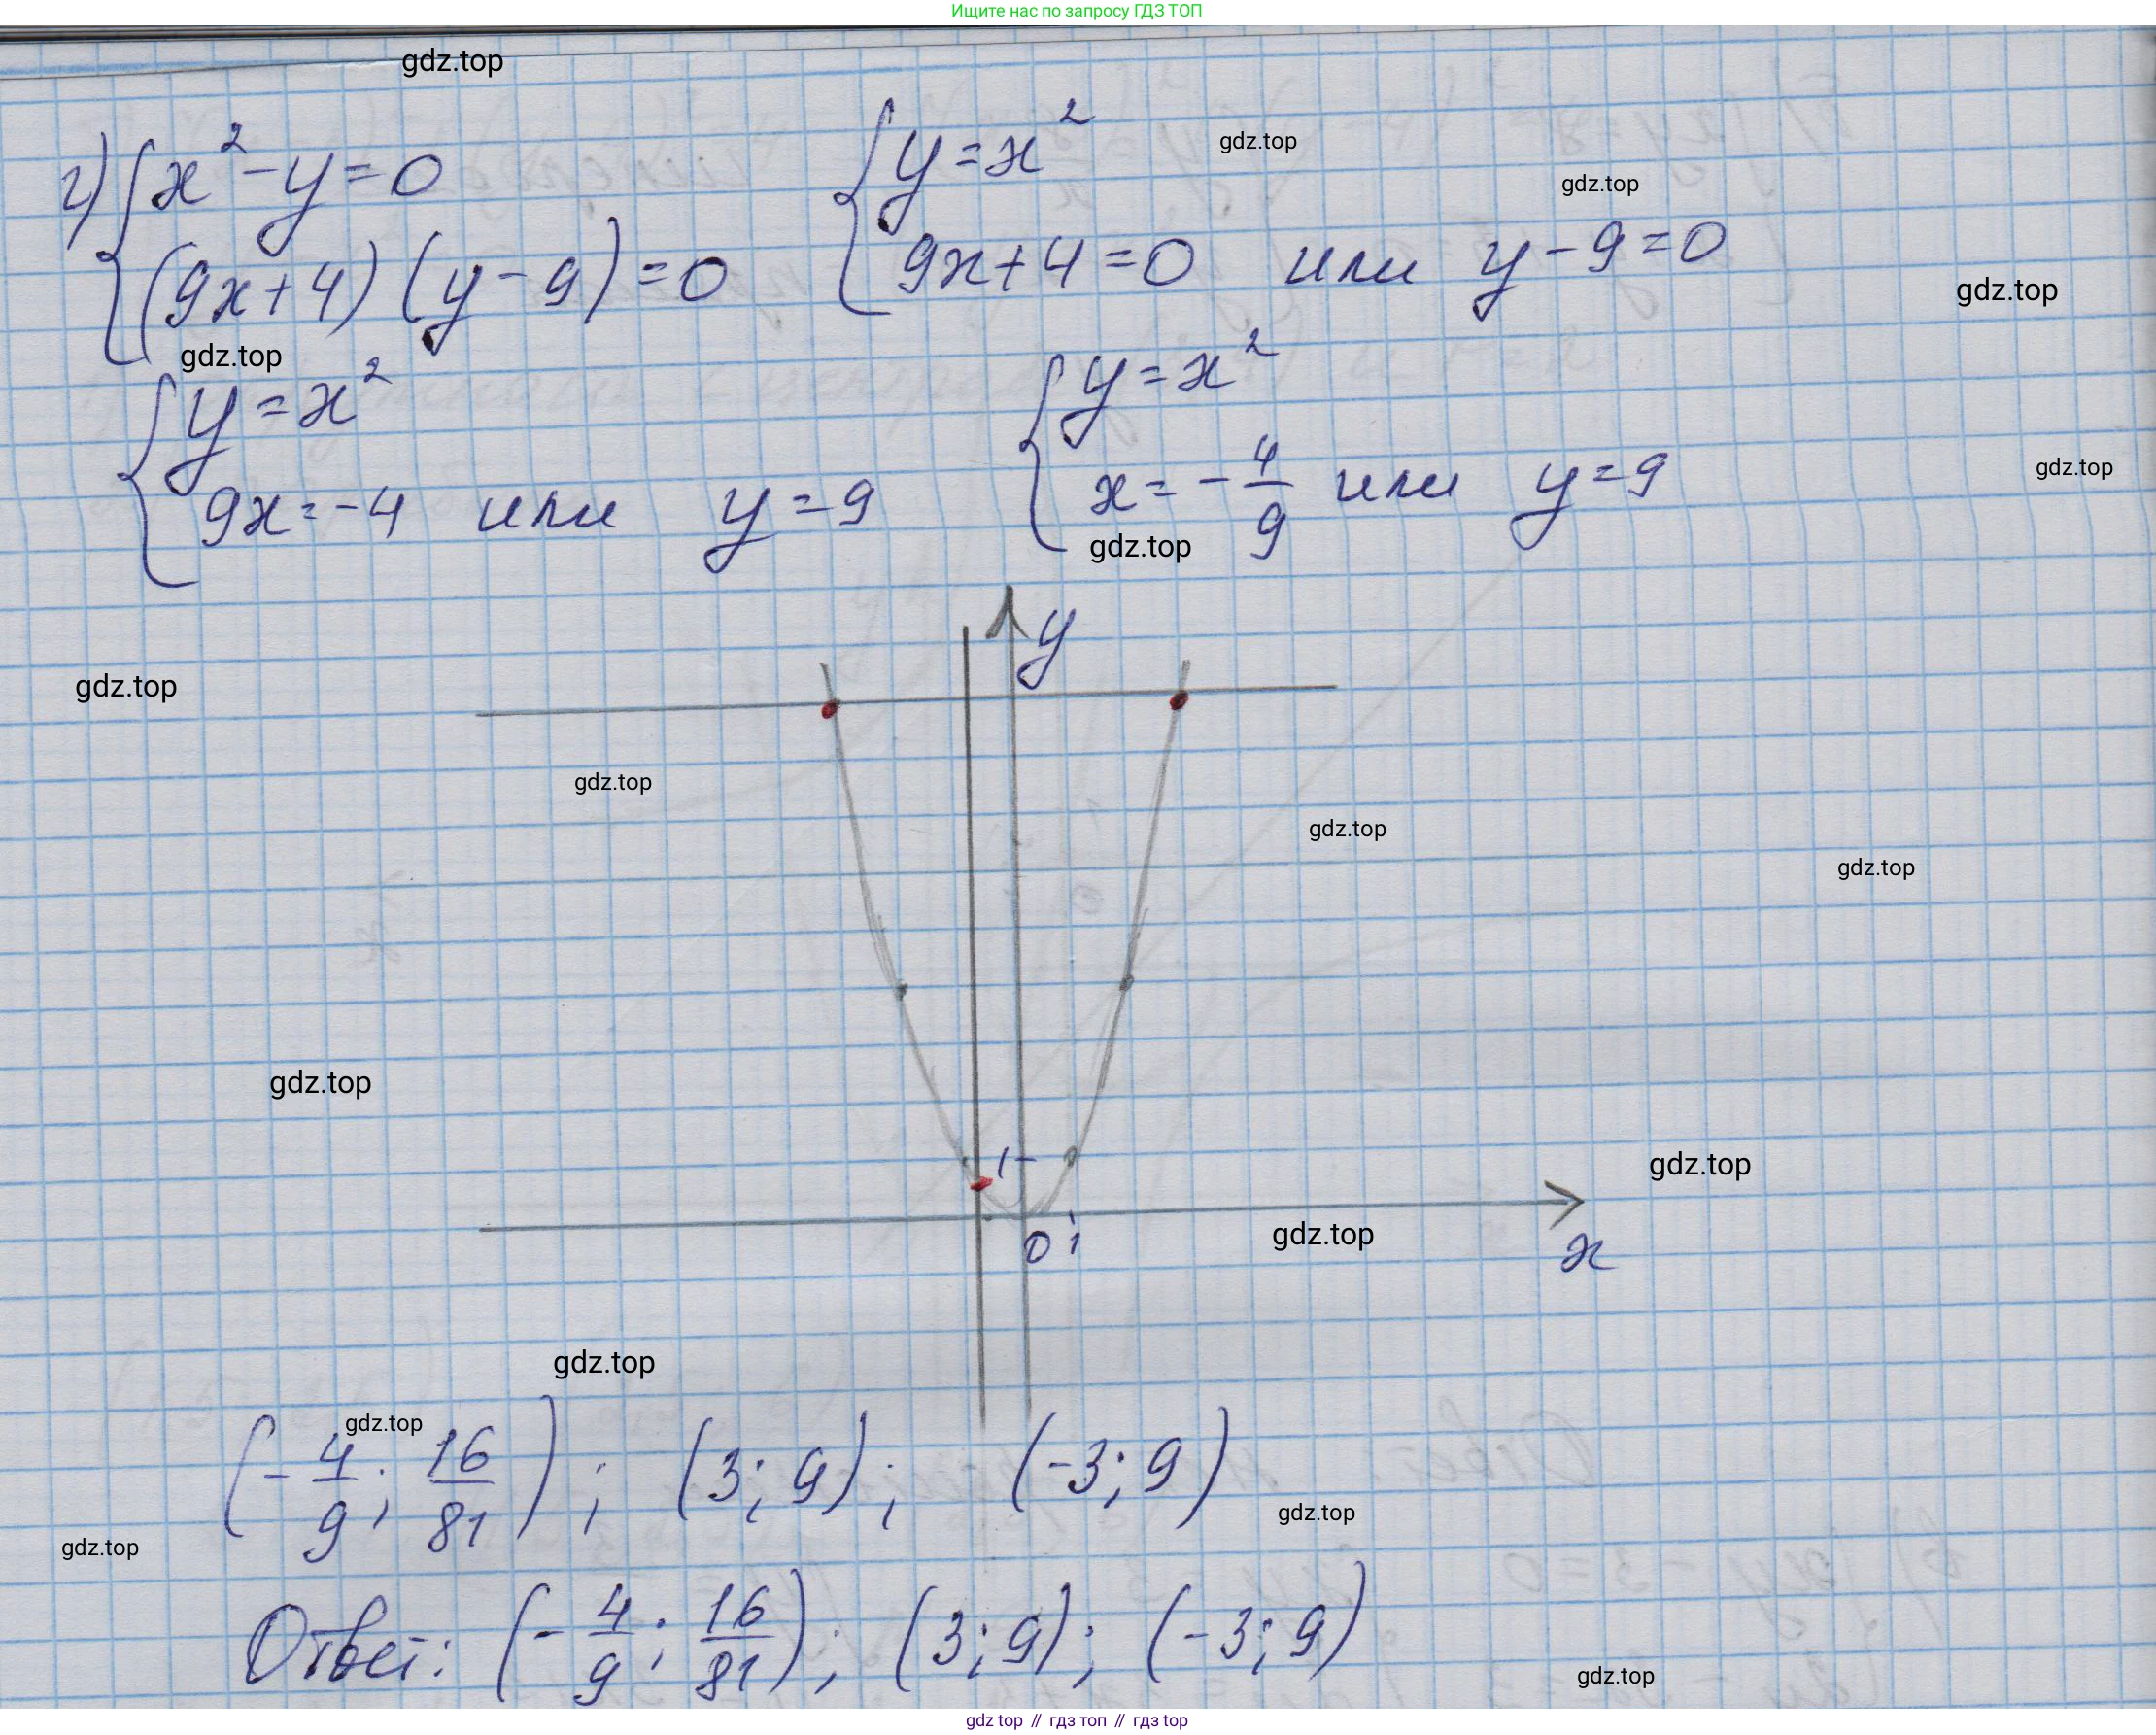 Ищите нас по запросу ГДЗ ТОП
gdz.top
г) { x² - y = 0 { y = x² gdz.top
gdz.top
(9x + 4)(y - 9) = 0 9x + 4 = 0 или y - 9 = 0
gdz.top
gdz.top
{ y = x² { y = x²
gdz.top
9x = -4 или y = 9 x = -4/9 или y = 9
gdz.top
y
gdz.top
gdz.top
gdz.top
gdz.top
gdz.top
1
gdz.top
0 1 gdz.top x
gdz.top
gdz.top
(-4/9; 16/81); (3; 9); (-3; 9)
gdz.top
gdz.top
Ответ: (-4/9; 16/81); (3; 9); (-3; 9)
gdz.top
gdz top // гдз топ // гдз top